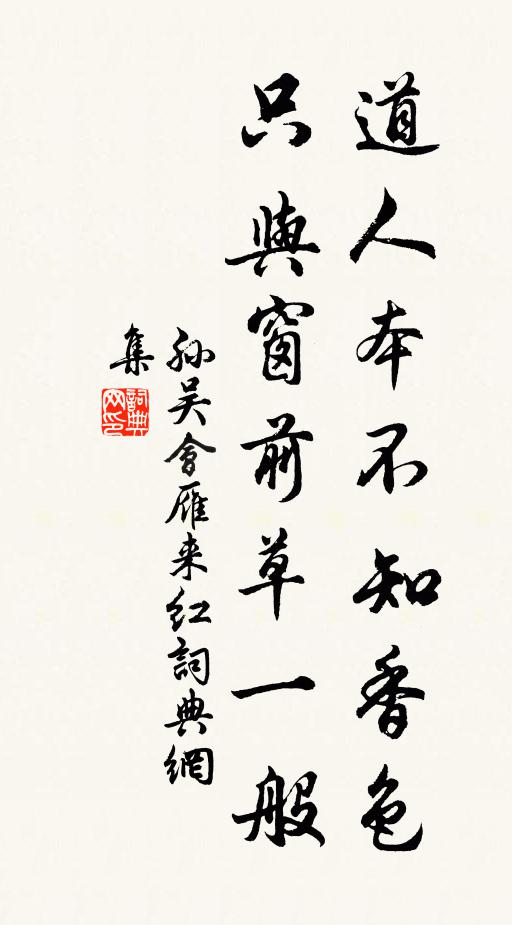 道人本不知香色
只與窗前草一般
孙吴會雁来红詞典網
集
詞典网印